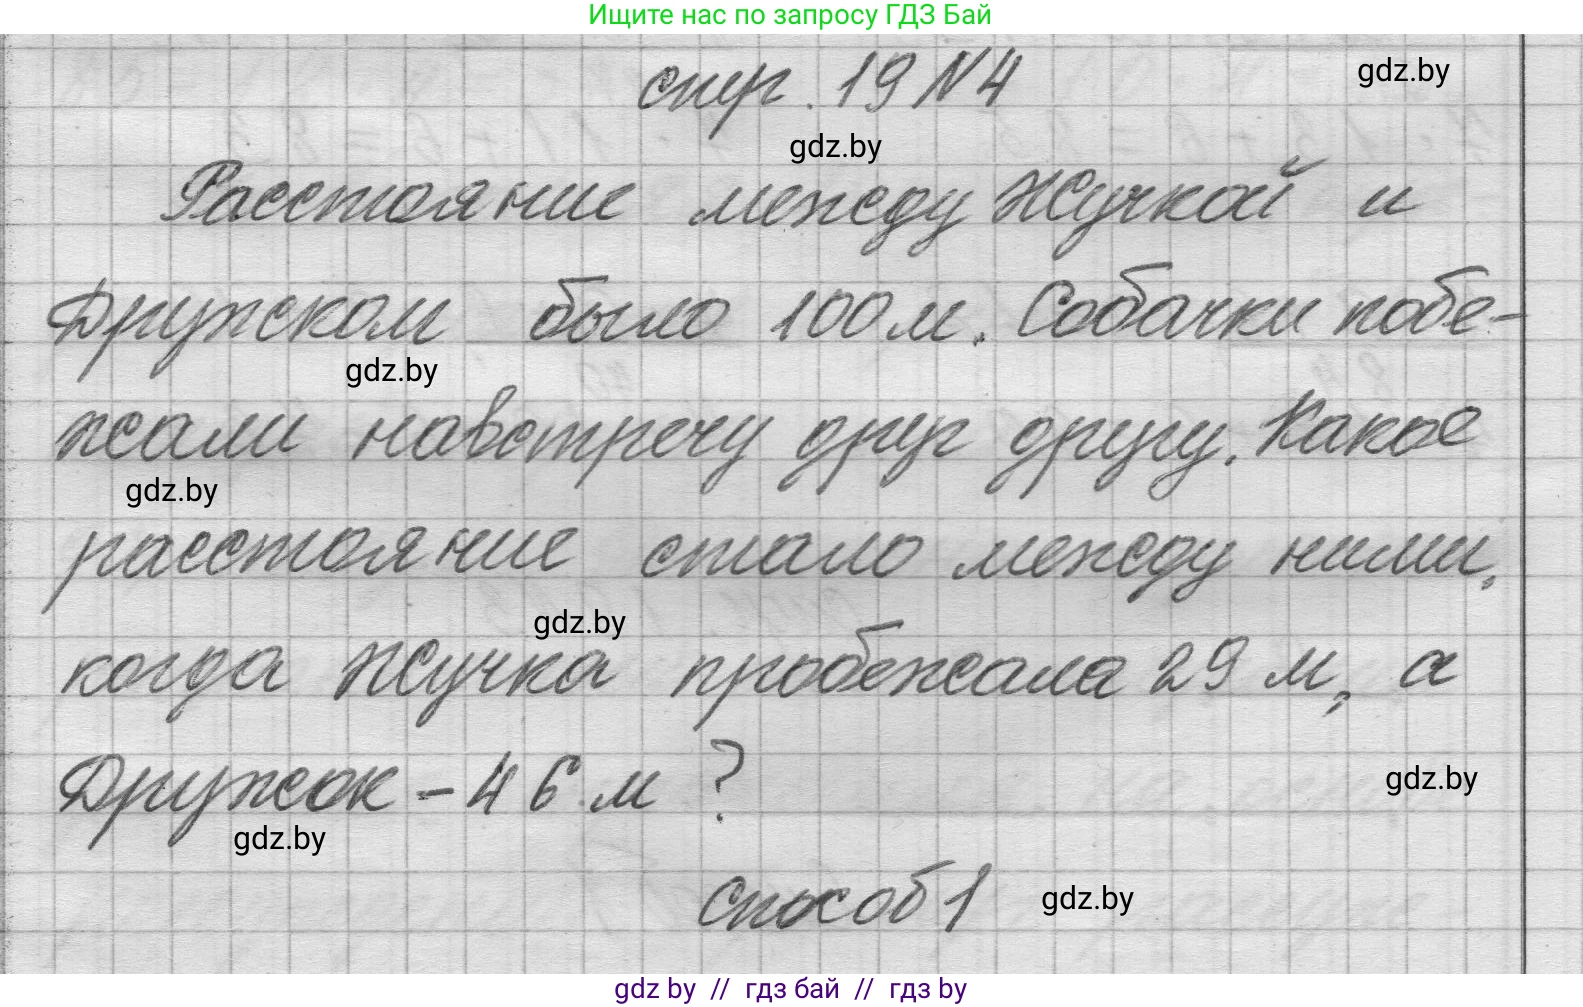 Ищите нас по запросу ГДЗ Бай
стр. 19 N4
gdz.by
gdz.by
Расстояние между Жучкой и
Дружком было 100 м. Собачки побе-
gdz.by
жали навстречу друг другу. Какое
gdz.by
расстояние стало между ними,
gdz.by
когда Жучка пробежала 29 м, а
Дружок - 46 м?
gdz.by
gdz.by
способ 1
gdz.by
gdz by // гдз бай // гдз by